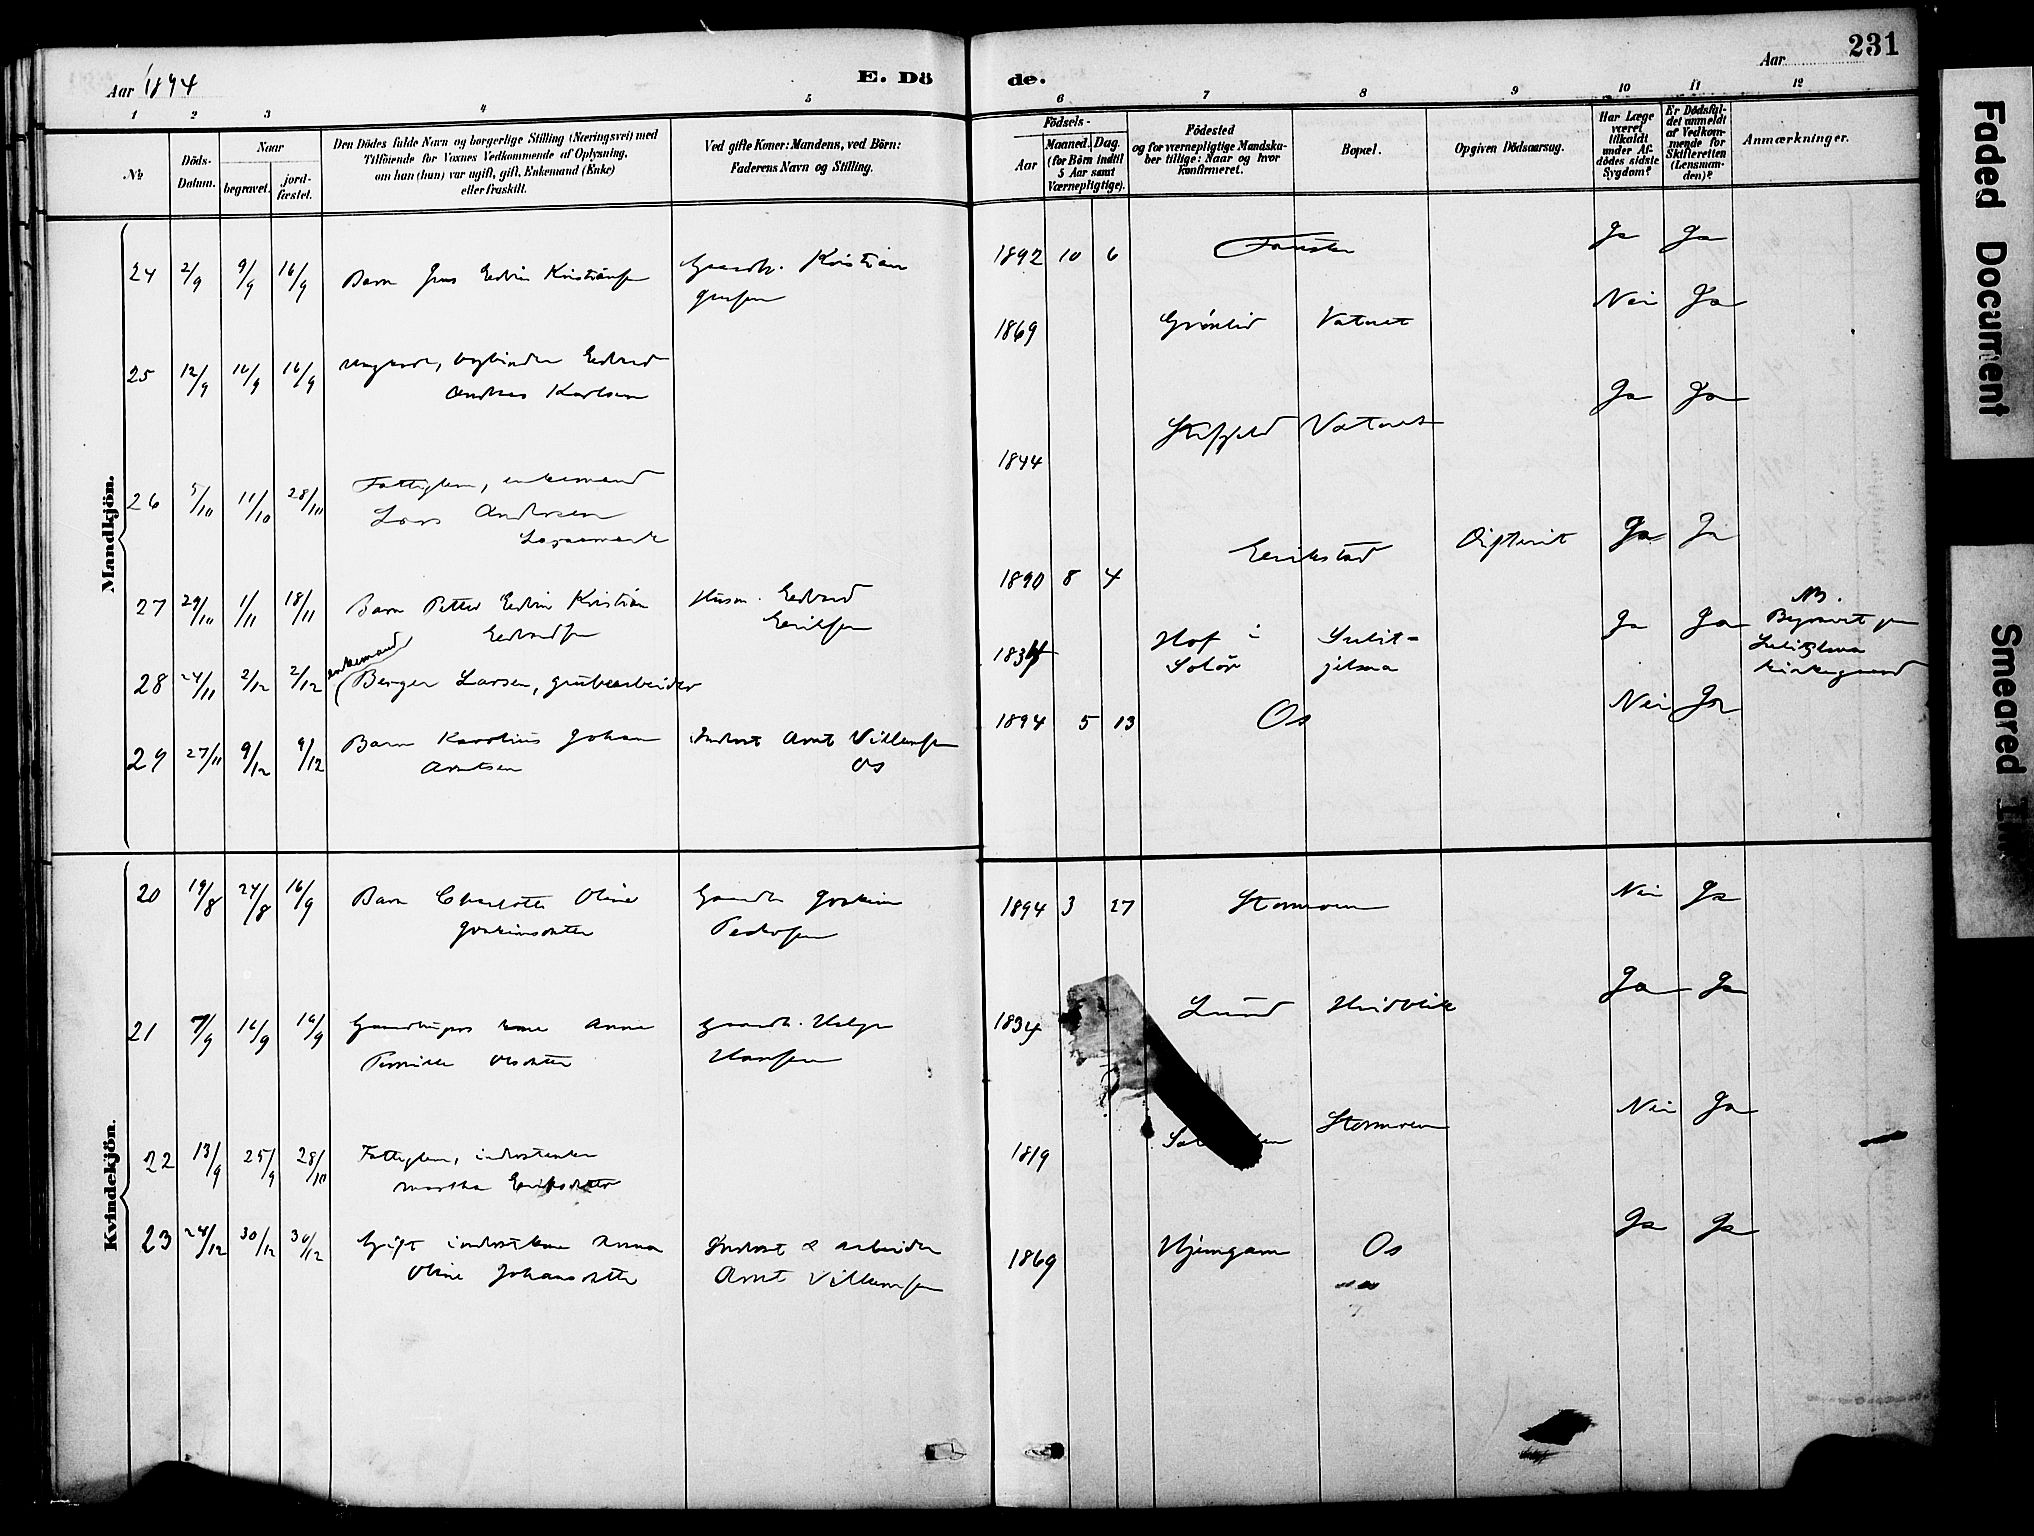 Aar 1894
E. Dö
de.
Aar
231
1 2 3 4 5
6 7 8 9 10 11 12
No
Döds-
Datum.
Naar
begravet.
jord-
fæstet.
Den Dödes fulde Navn og borgerlige Stilling (Næringsvei) med
Tilföiende for Voxnes Vedkommende af Oplysning,
om han (hun) var ugift, gift, Enkemand (Enke)
eller fraskilt.
Ved gifte Koner: Mandens, ved Börn:
Faderens Navn og Stilling.
Födsels-
Aar
Maaned. Dag.
(for Börn indtil
5 Aar samt
Værnepligtige).
Födested
og for værnepligtige Mandska-
ber tillige: Naar og hvor
konfirmeret.
Bopæl.
Opgiven Dödsaarsag.
Har Læge
været
tilkaldt
under Af-
dödes sidste
Sygdom?
Er Dödsfal-
det anmeldt
af Vedkom-
mende for
Skifteretten
(Lensman-
den)?
Anmærkninger.
Mandkjön.
24 2/9 9/9 16/9 Barn Jens Edvin Kristiansen Gaardb. Kristian
Jensen
1892 10 6 Fauske Ja Ja
25 12/9 16/9 16/9 Ungkarl, bogbinder Edvard
Andreas Karlsen
1869 Grönlid Vatnet Nei Ja
26 5/10 11/10 28/10 Fattiglem, enkemand
Lars Andersen
1844 Vatnet Ja Ja
27 29/10 1/11 18/11 Barn Petter Edvin Kristian
Edvardsen
Husm. Edvard
Eriksen
1890 8 4 Erikstad Difterit Ja Ja
28 24/11 2/12 2/12 enkemand
Berger Larsen, grubearbeider
183 Hof i
Solör
Sulit-
jelma
Ja Ja
NB.
Begravet paa
Sulitjelma
kirkegaard
29 27/11 9/12 9/12 Barn Karolius Johan
Arntsen
Inderst Arnt Villumsen
Os
1894 5 13 Os Nei Ja
Kvindekjön.
20 19/8 24/8 16/9 Barn Charlotte Oline
Joakimsdatter
Gaardb. Joakim
Pedersen
1894 3 27 Stormoen Nei Ja
21 7/9 16/9 16/9 Gaardbrugers kone Anne
Pernille Olsdatter
Gaardb. Helge
Hansen
1834 Lund Hvidvik Ja Ja
22 13/9 25/9 28/10 Fattiglem, inderstenke
Martha Eriksdatter
1819 Stormoen Nei Ja
23 24/12 30/12 30/12 Gift inderstkone Anna
Oline Johansdatter
Inderst & arbeider
Arnt Villumsen
1869 Hjemgam Os Ja Ja
Faded Document
Smeared Ink